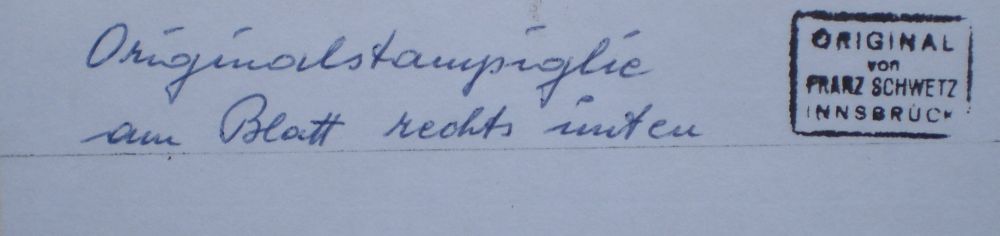 Originalstampiglie
am Blatt rechts unten
ORIGINAL
von
FRANZ SCHWETZ
INNSBRUCK